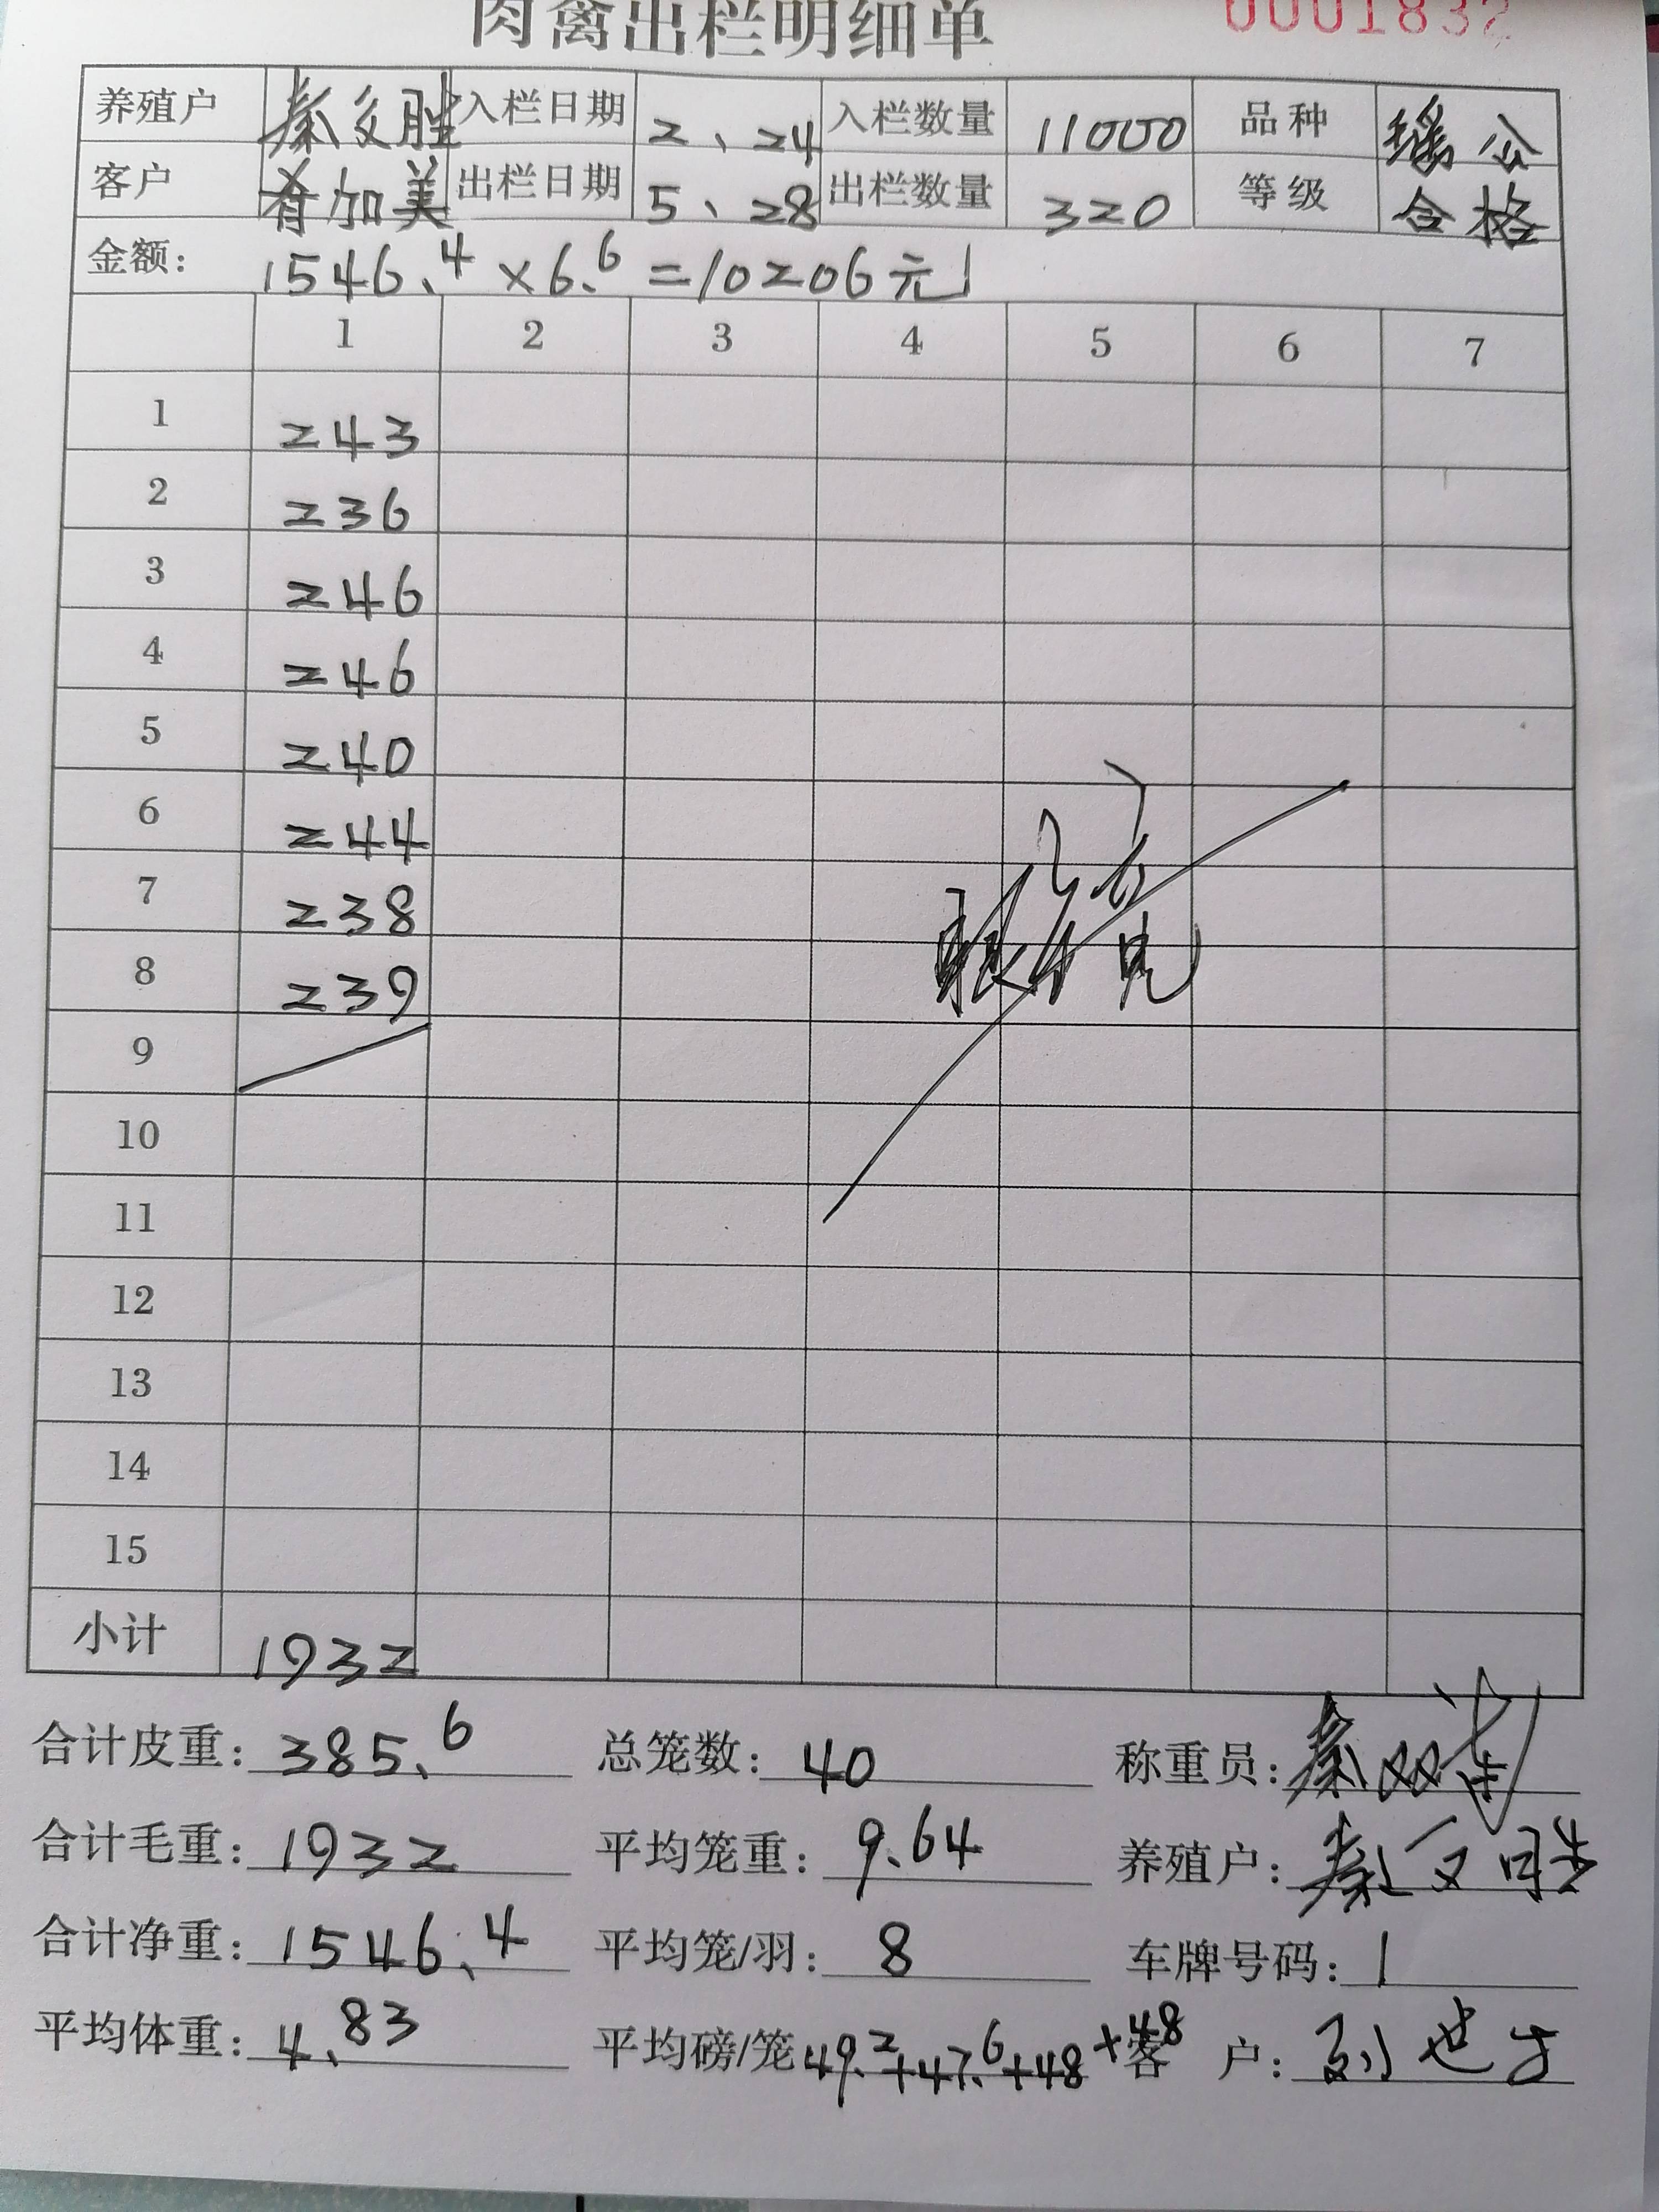 肉禽出栏明细单 0001832
养殖户 秦文胜 入栏日期 2、24 入栏数量 11000 品种 瑶公
客户 有加美 出栏日期 5、28 出栏数量 320 等级 合格
金额: 1546.4×6.6=10206元
1 2 3 4 5 6 7
1 243
2 236
3 246
4 246
5 240
6 244
7 238
8 239
9
10
11
12
13
14
15
小计 1932
合计皮重: 385.6 总笼数: 40 称重员: 秦双
合计毛重: 1932 平均笼重: 9.64 养殖户: 秦文胜
合计净重: 1546.4 平均笼/羽: 8 车牌号码: 1
平均体重: 4.83 平均磅/笼 49.2+47.6+48+48 客户: